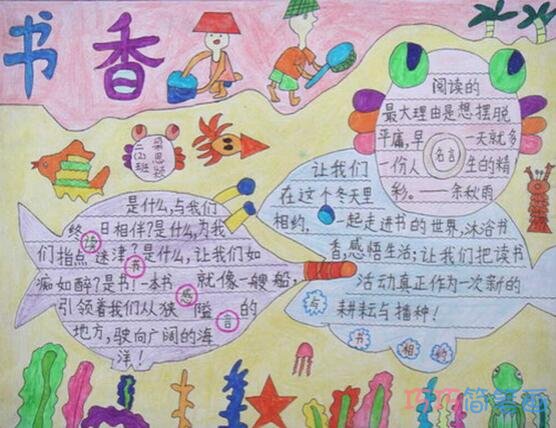 书香
二(2)班
阅读的
最大理由是想摆脱
平痛,早一天就多
一份人生的精
彩。——余秋雨
名言
是什么,与我们
终日相伴?是什么,为我
们指点迷津?是什么,让我们如
痴如醉?是书!一本书就像一艘船,
引领着我们从狭隘的
地方,驶向广阔的海
洋!
读
书
感
言
让我们
在这个冬天里
相约,一起走进书的世界,沐浴书
香,感悟生活;让我们把读书
活动真正作为一次新的
耕耘与播种!
与
书
相
约
巧巧简笔画